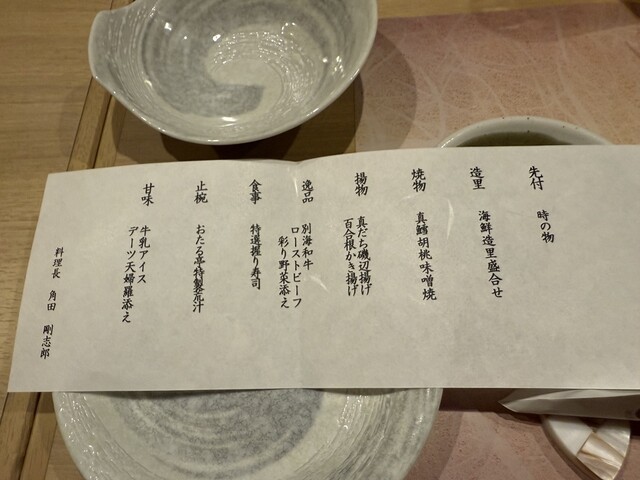 先付
時の物
造里
海鮮造里盛合せ
焼物
真鱈胡桃味噌焼
揚物
真だち磯辺揚げ
百合根かき揚げ
逸品
別海和牛
ローストビーフ
彩り野菜添え
食事
特選握り寿司
止椀
おたる亭特製荒汁
甘味
牛乳アイス
デーツ天婦羅添え
料理長 角田 剛志郎